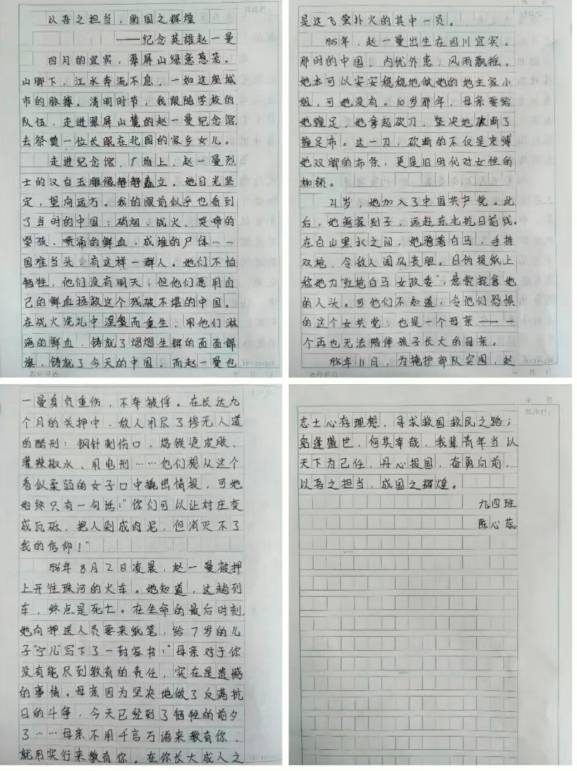 以吾之担当，助国之辉煌
——纪念英雄赵一曼
四月的宜宾，翠屏山绿意葱茏。
山脚下，江水奔流不息，一如这座城
市的脉搏。清明时节，我跟随学校的
队伍，走进翠屏山麓的赵一曼纪念馆
去祭奠一位长眠在北国的家乡女儿。
走进纪念馆，广场上，赵一曼烈
士的汉白玉雕像静静矗立。她目光坚
定，望向远方。我的眼前似乎也看到
了当时的中国：硝烟、战火、哭啼的
婴孩、喷涌的鲜血、成堆的尸体……
国难当头，有这样一群人。他们不怕
牺牲，他们没有明天，但他们愿用自
己的鲜血拯救这个残破不堪的中国。
在战火洗礼中涅槃而重生，用他们淋
漓的鲜血，铸就了熠熠生辉的面面郡
旗，铸就了今天的中国。而赵一曼也
是这飞蛾扑火的其中一员。
1905年，赵一曼出生在四川宜宾。
那时的中国，内忧外患，风雨飘摇。
她本可以安安稳稳地做她的地主家小
姐，可她没有。10岁那年，母亲要给
她缠足，她拿起砍刀，坚决地砍断了
缠足布。这一刀，砍断的不仅是束缚
她双脚的布条，更是旧时代对女性的
枷锁。
21岁，她加入了中国共产党。此
后，她告别别子，远赴东北抗日前线。
在白山黑水之间，她骑着白马，手持
双枪，令敌人闻风丧胆。日伪报纸上
称她为"红枪白马女政委"，悬赏捉拿她
的人头。可他们不知道，令他们恐惧
的这个女共党，也是一个母亲——一
个再也无法陪伴孩子长大的母亲。
1935年11月，为掩护部队突围，赵
一曼身负重伤，不幸被俘。在长达九
个月的关押中，敌人用尽了惨无人道
的酷刑：钢针刺伤口、烙铁烫皮肤、
灌辣椒水、用电刑……他们想从这个
看似柔弱的女子口中撬出情报，可她
始终只有一句话："你们可以让村庄变
成瓦砾，把人剁成肉泥，但消灭不了
我的信仰！"
1936年8月2日凌晨，赵一曼被押
上开往珠河的火车。她知道，这趟列
车，终点是死亡。在生命的最后时刻
她向押送人员要来纸笔，给7岁的儿
子"宁儿"写下了一封家书："母亲对于你
没有能尽到教育的责任，实在是遗憾
的事情。母亲因为坚决地做了反满抗
日的斗争，今天已经到了牺牲的前夕
了……母亲不用千言万语来教育你，
就用实行来教育你。在你长大成人之
志士心存理想，寻求救国救民之路；
躬逢盛世，何其幸哉，我辈青年当以
天下为己任，丹心报国，奋勇向前，
以吾之担当，成国之辉煌。
九四班
陈心蕊